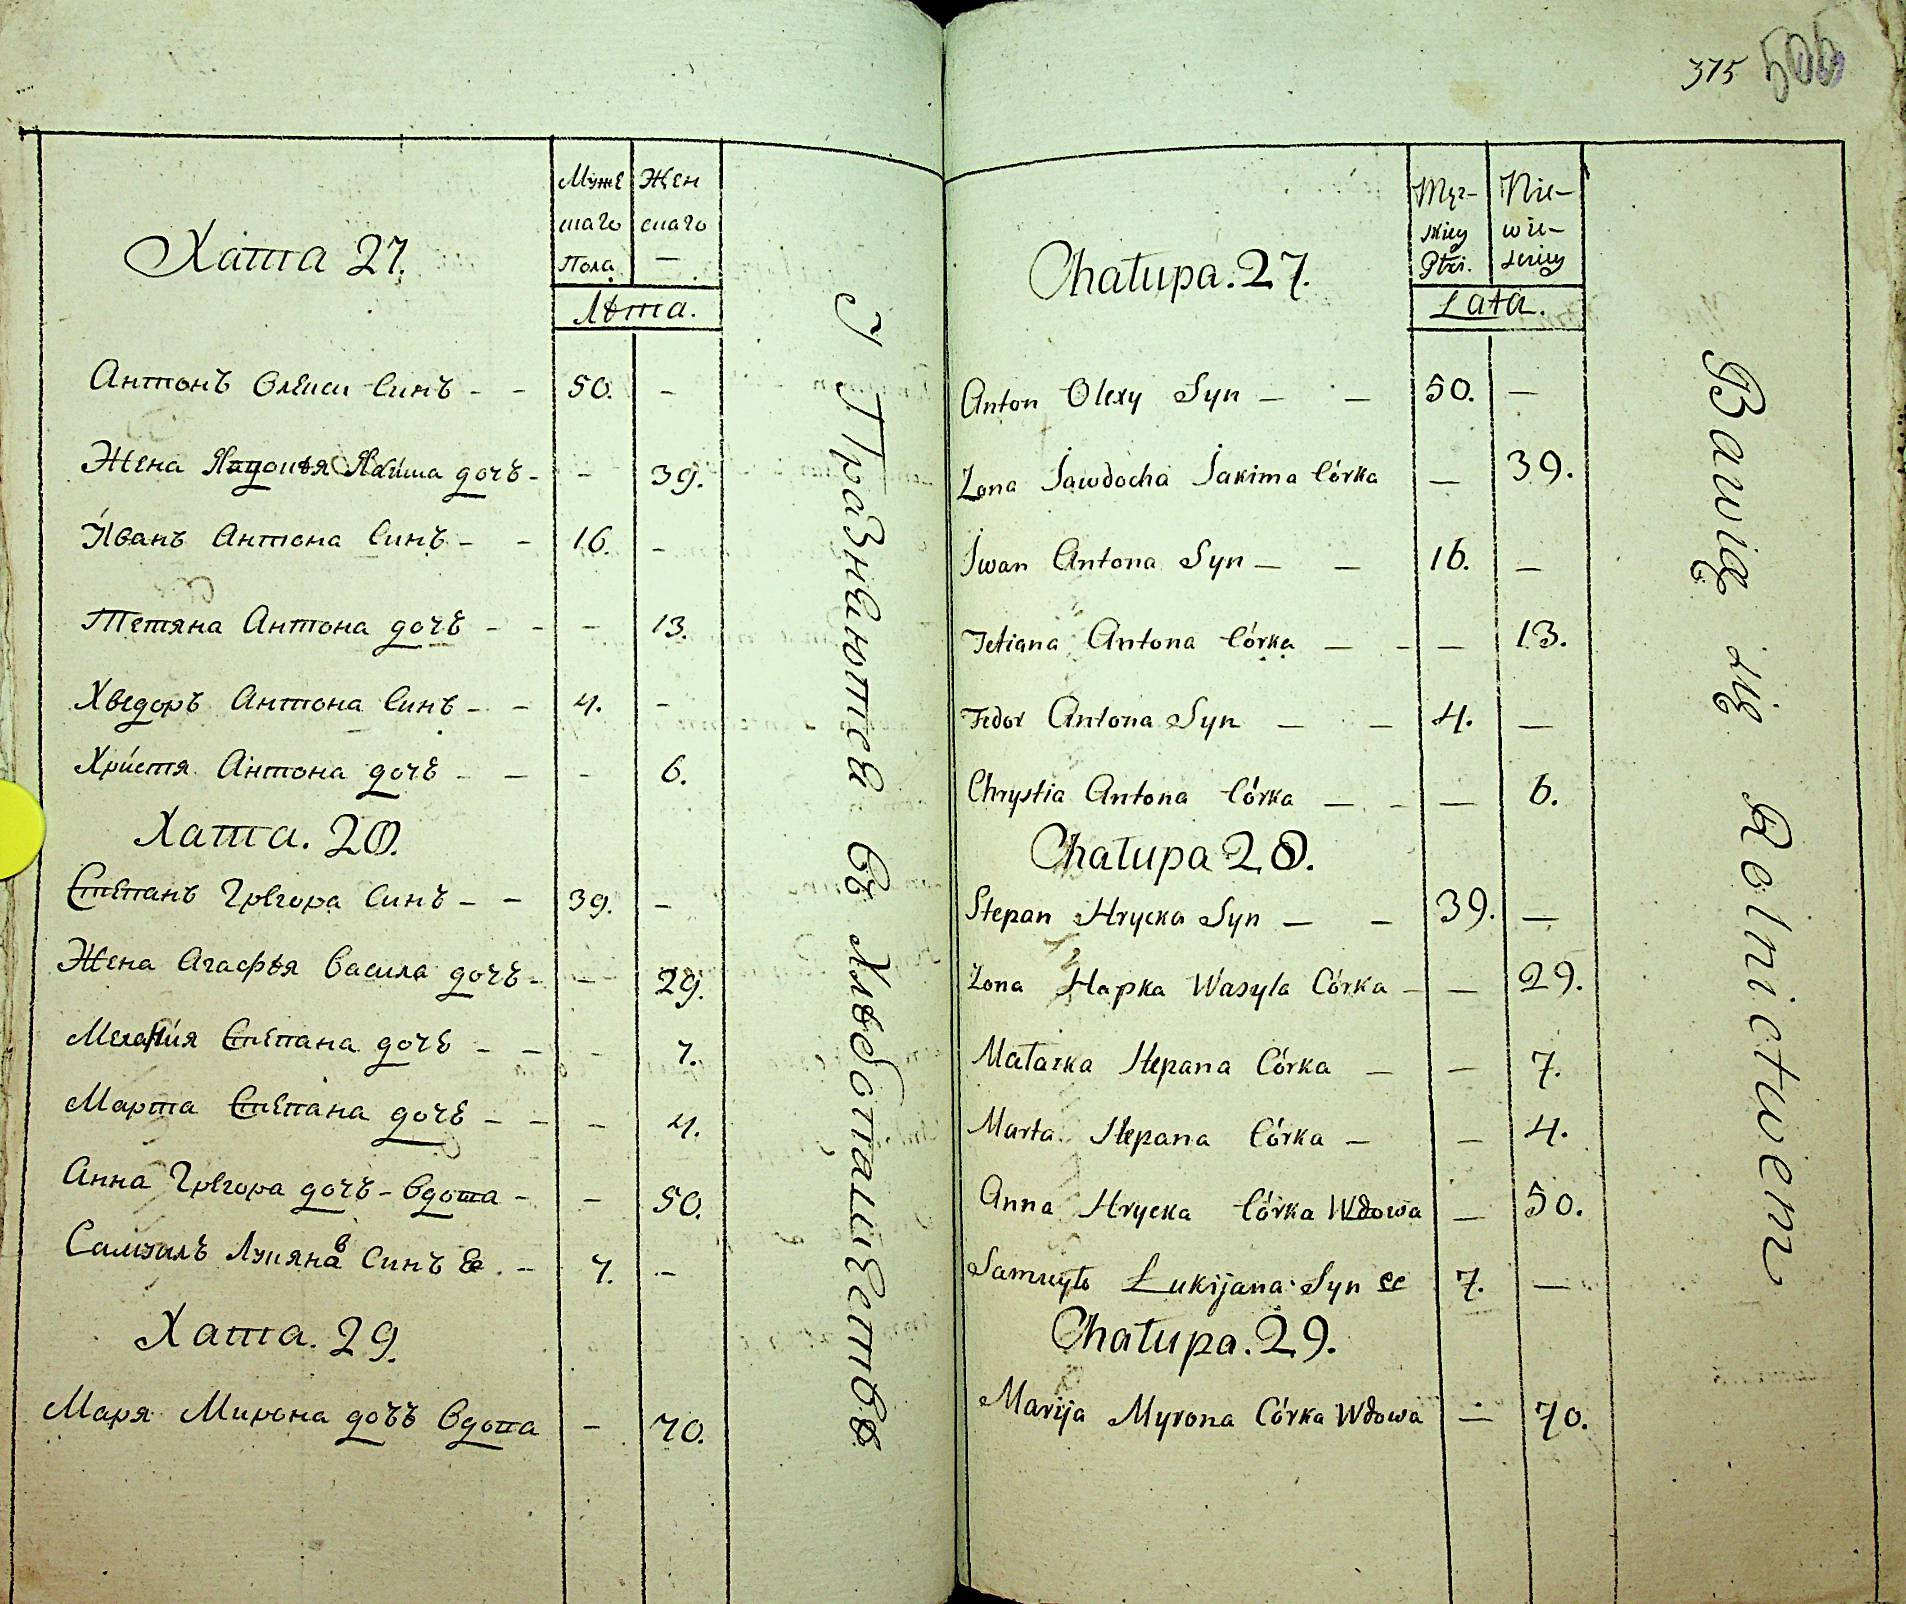 Хата 27.
Муже
скаго
Пола
Жен
скаго
Лѣта.
Антонъ Олекси Синъ - - 50. -
Жена Явдокѣя Якима дочъ - - 39.
Иванъ Антона Синъ - - 16. -
Тетяна Антона дочъ - - - 13.
Хведоръ Антона Синъ - - 4. -
Христя Антона дочъ - - - 6.
Хата. 28.
Степанъ Григора Синъ - - 39. -
Жена Агафѣя Васила дочъ - - 29.
Меланія Степана дочъ - - - 7.
Марта Степана дочъ - - - 4.
Анна Григора дочъ - вдова - - 50.
Самуилъ Лукянов Синъ Ее. - 7. -
Хата. 29.
Маря Мирона дочъ вдова - 70.
Упражняются въ Хлѣбопашествѣ
375 505
Chałupa. 27.
Męz-
skiey
Płci.
Nie-
wie-
sciey
Lata.
Anton Olexy Syn - - 50. -
Zona Jawdocha Jakima Córka - 39.
Jwan Antona Syn - - 16. -
Tetiana Antona Córka - - - 13.
Fedor Antona Syn - - 4. -
Chrystia Antona Córka - - - 6.
Chałupa 28.
Stepan Hrycka Syn - - 39. -
Zona Hapka Wasyla Córka - - 29.
Małazka Stepana Córka - - 7.
Marta Stepana Córka - - 4.
Anna Hrycka Córka Wdowa - 50.
Samuyło Łukijana Syn ee 7. -
Chałupa. 29.
Marija Myrona Córka Wdowa - 70.
Bawią się Rolnictwem